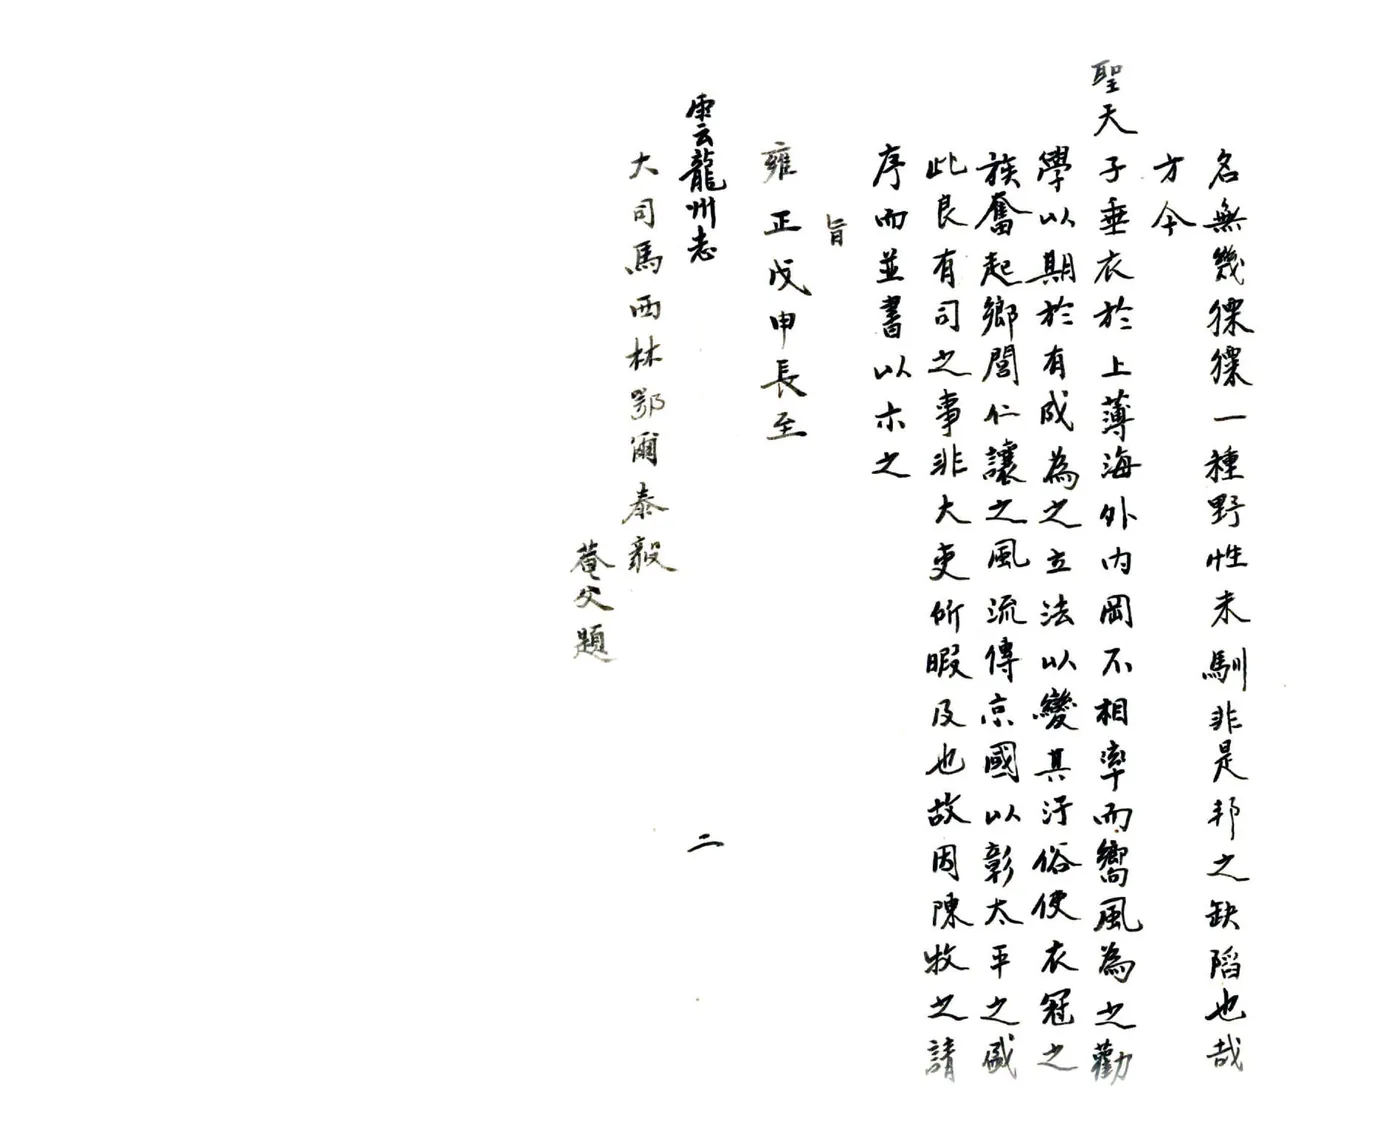 名無幾猓玀一種野性未馴非是邦之缺陷也哉
方今
聖天子垂衣於上薄海外内罔不相率而嚮風為之勸
學以期於有成為之立法以變其汙俗使衣冠之
族奮起鄉閭仁讓之風流傳京國以彰太平之盛
此良有司之事非大吏所暇及也故因陳牧之請
序而並書以示之
旨
雍正戊申長至
雲龍州志 二
大司馬西林鄂爾泰毅
菴父題